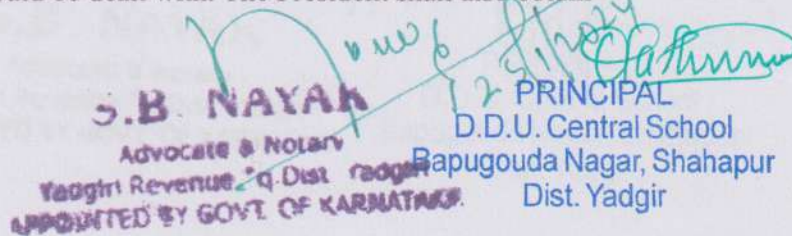 S.B. NAYAK
Advocate & Notary
Yadgiri Revenue Dist
APPOINTED BY GOVT. OF KARNATAKA
25/1/2024
PRINCIPAL
D.D.U. Central School
Bapugouda Nagar, Shahapur
Dist. Yadgir